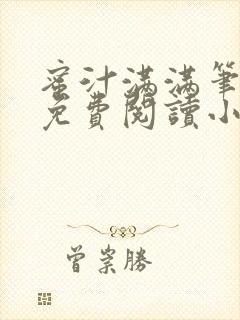 蜜汁滿滿筆
免費閱讀小
曾崇勝